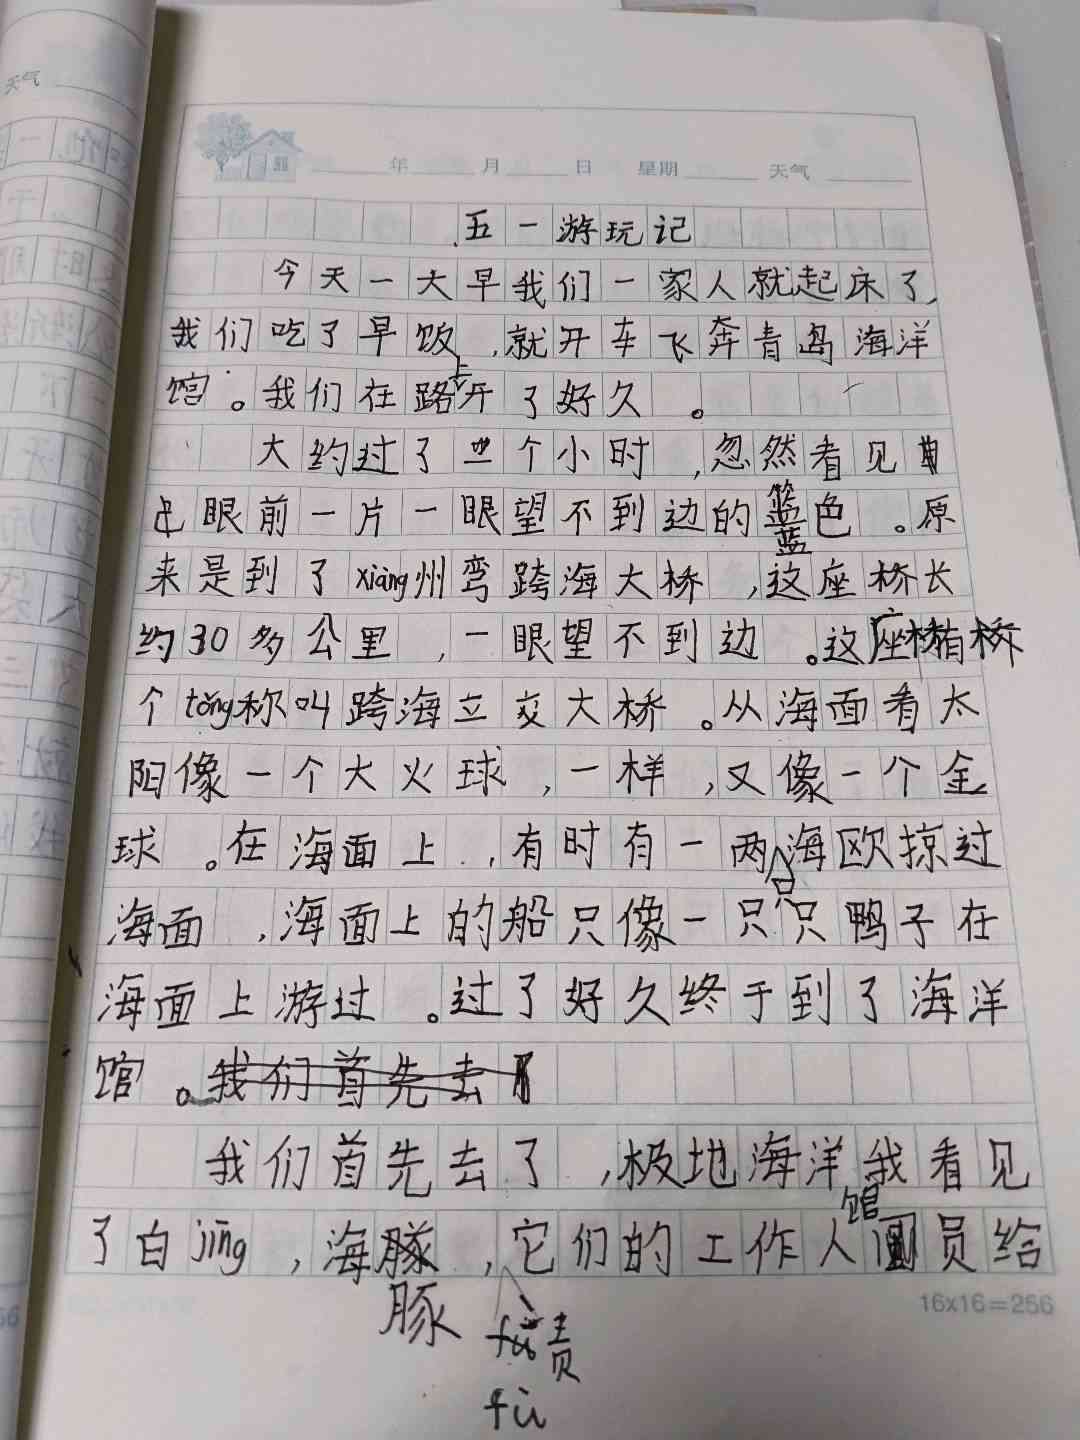 天气
年 月 日 星期 天气
五一游玩记
今天一大早我们一家人就起床了,
我们吃了早饭,就开车飞奔青岛海洋
馆。我们在路上开了好久。
大约过了三个小时,忽然看见
眼前一片一眼望不到边的蓝色。原
来是到了xiàng州弯跨海大桥,这座桥长
约30多公里,一眼望不到边。这座桥有桥
个tǒng称叫跨海立交大桥。从海面看太
阳像一个大火球,一样,又像一个金
球。在海面上,有时有一两只海欧掠过
海面,海面上的船只像一只只鸭子在
海面上游过。过了好久终于到了海洋
馆。我们首先去了
我们首先去了,极地海洋馆我看见
了白jīng,海豚,它们的工作人员给
豚 fù责
fù
16x16=256